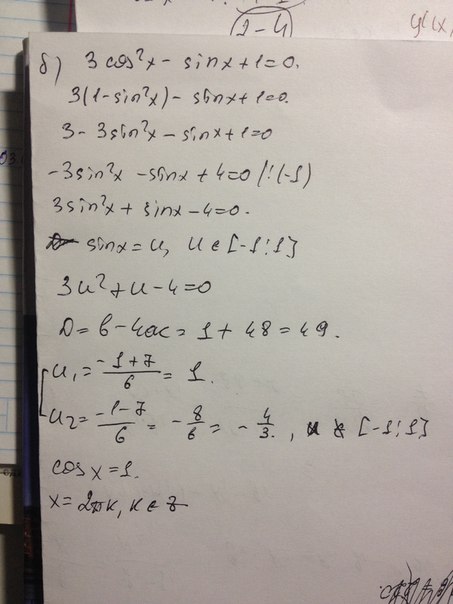 2-4
y(x)
б) 3cos²x - sinx + 1 = 0.
3(1-sin²x) - sinx + 1 = 0.
3 - 3sin²x - sinx + 1 = 0
-3sin²x - sinx + 4 = 0 /:(-1)
3sin²x + sinx - 4 = 0.
sinx = u, u ∈ [-1;1]
3u² + u - 4 = 0
D = b - 4ac = 1 + 48 = 49.
u₁ = (-1+7)/6 = 1.
u₂ = (-1-7)/6 = -8/6 = -4/3., ∉ [-1;1]
cosx = 1.
x = 2πk, k ∈ z